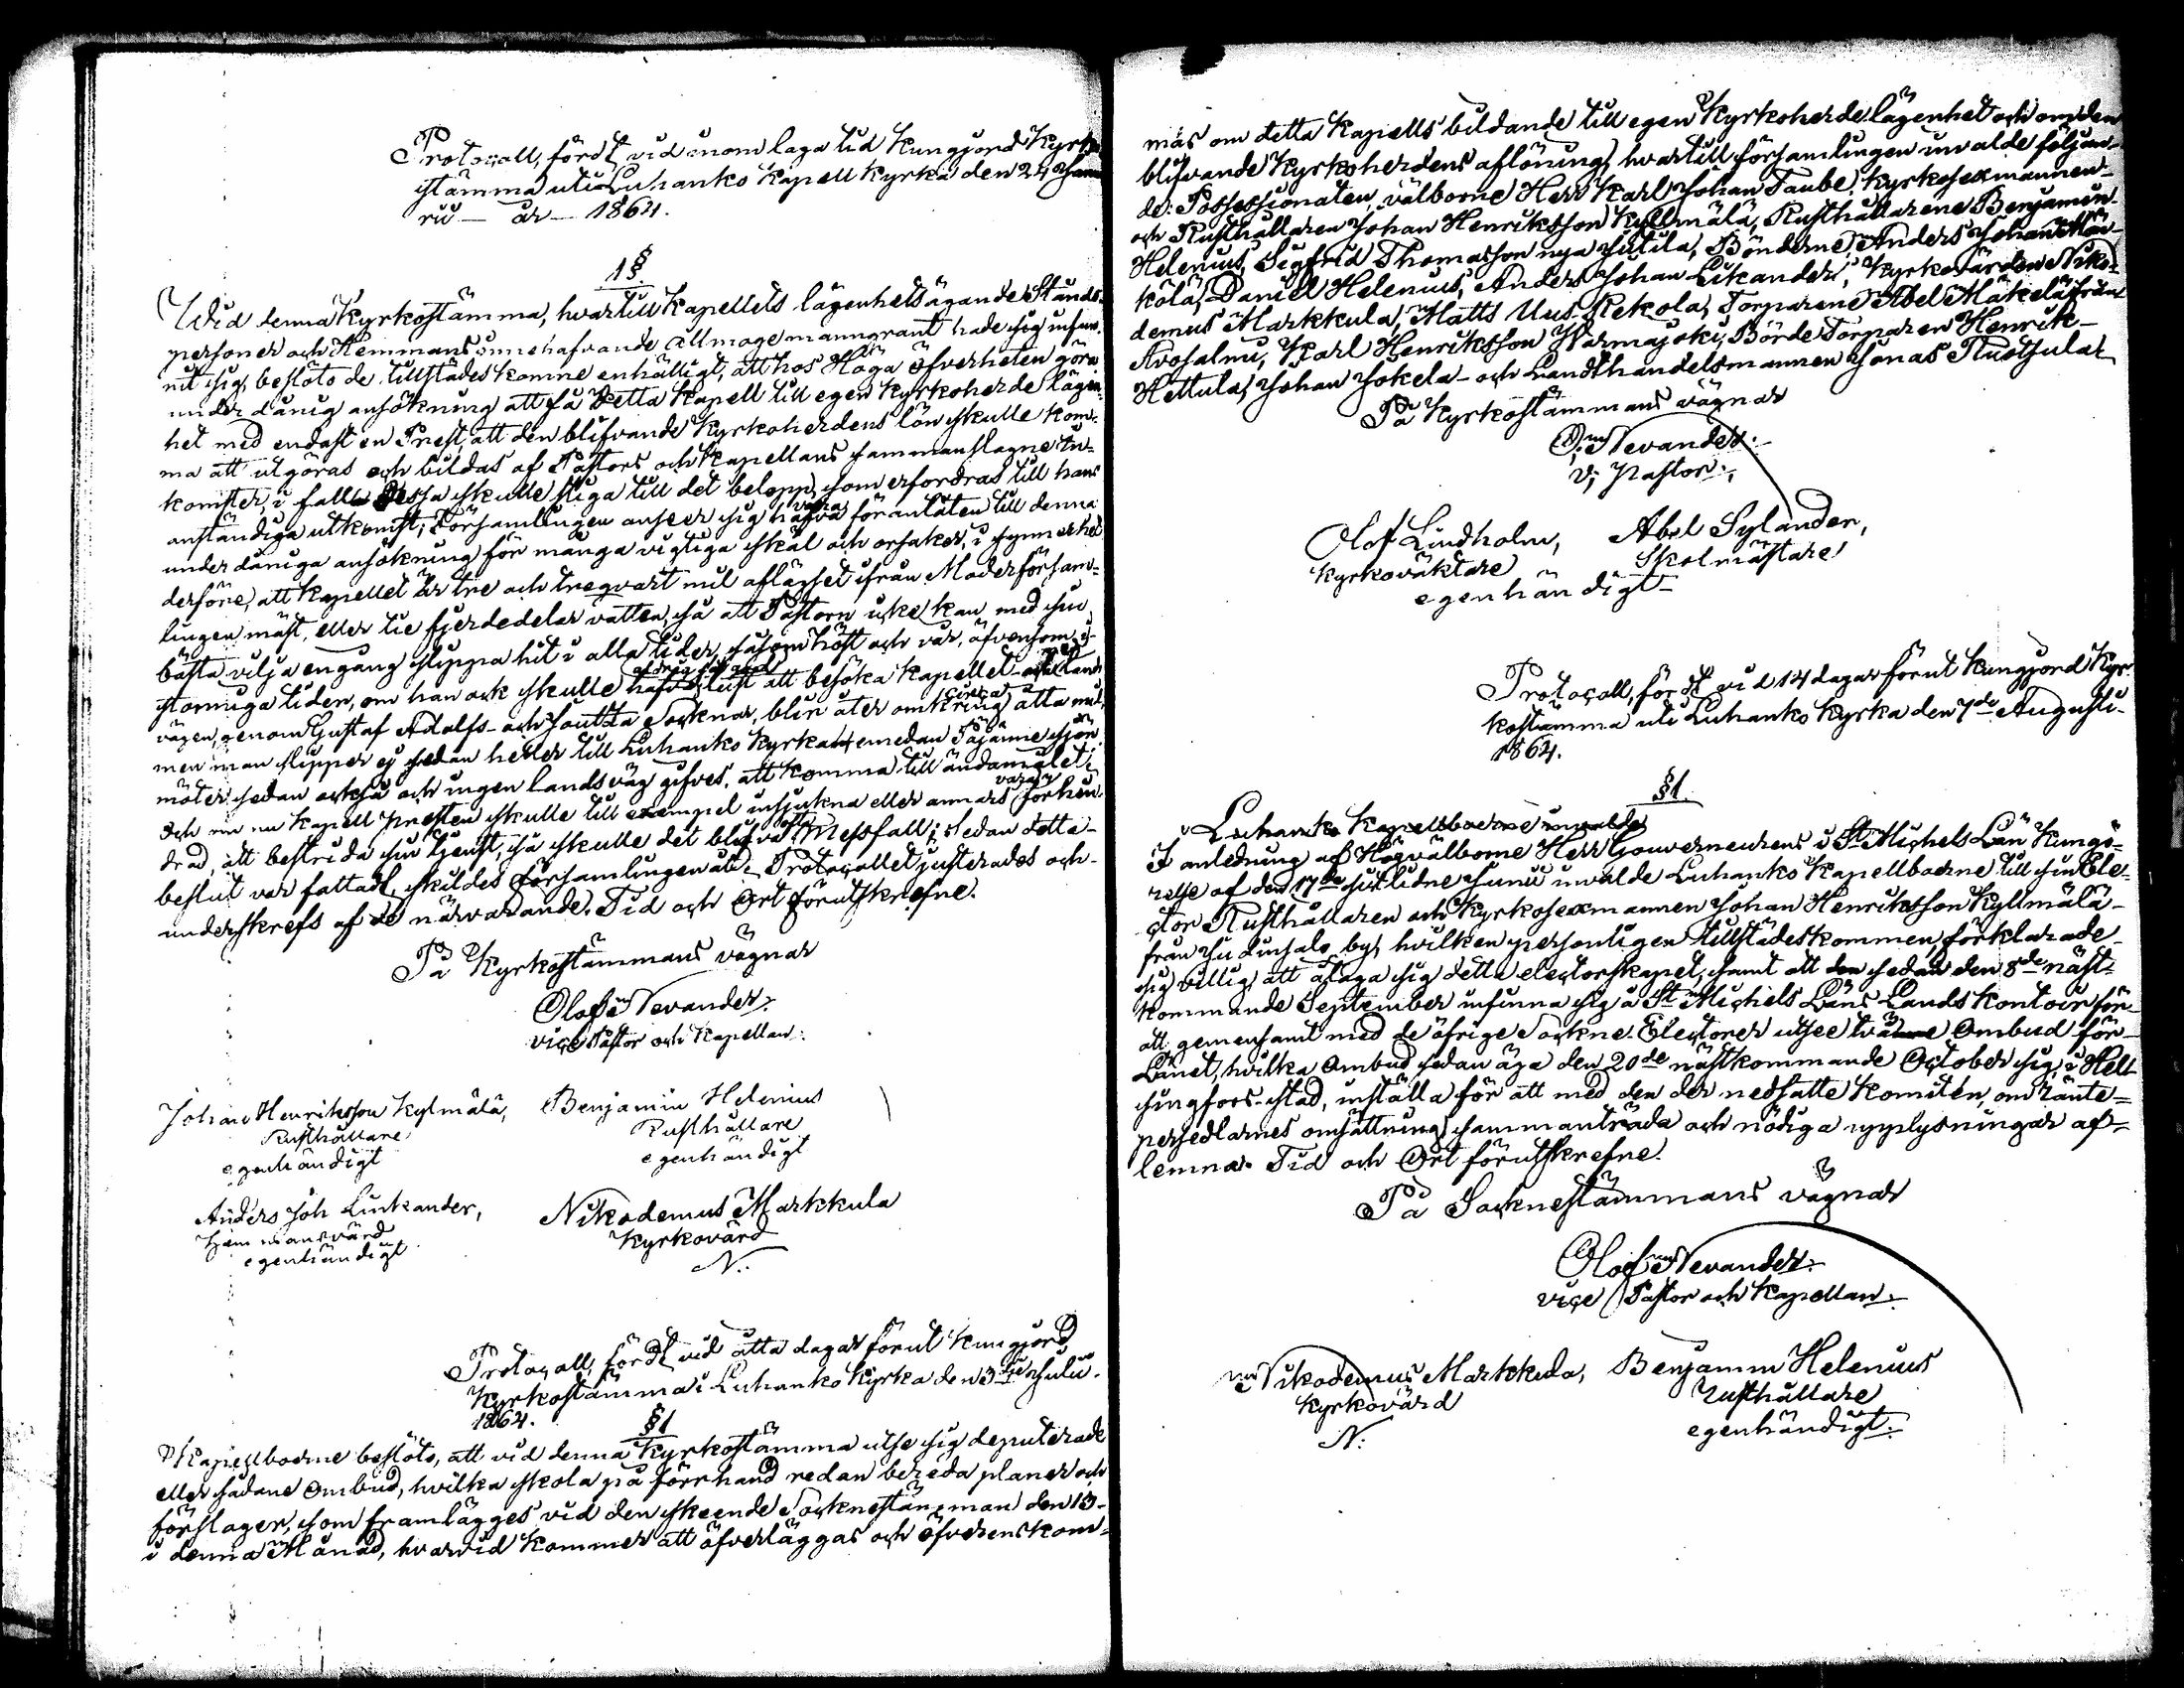 Protocoll, fördt vid inom laga tid kungjord Kyrko
stämma uti Luhanko Kapell kyrka den 24 Janua
rii — år — 1864.
1 §
Wid denna Kyrkostämma, hvartill Kapellets lägenhetsägande Stånds-
personer och Hemmans innehafvande allmoge manngrant hade sig infun-
nit sig, beslöto de tillstädeskomne enhälligt, att hos Höga öfverheten göra
underdånig ansökning att få detta Kapell till egen Kyrkoherde lägen-
het med endast en Prest, att den blifvande Kyrkoherdens lön skulle kom-
ma att utgöras och bildas af Pastors och Kapellans sammanslagne in-
komster, i fall dessa skulle stiga till det belopp, som erfordras till hans
anständiga utkomst; Församlingen anser sig hafva föranlåten till denna
vara
underdåniga ansökning för många vigtiga skäl och orsaker, i synnerhet
derföre, att Kapellet är tre och tregvart mil aflägset ifrån Moderförsam-
lingen mäst, eller tie fjerdedelar vatten, så att Pastorn icke kan med sin
bästa vilja en gång slippa hit i alla tider, såsom höst och vår, äfvensom i
stormiga tider, om han ock skulle hafva lust att besöka Kapellet
vägen, genom Gustaf Adolfs- och Joutsa Socknar, blir åter omkring åtta mil,
circa
men man slipper ej sedan heller till Luhanko Kyrka emedan Päjänne sjön
möter sedan också och ingen landsväg gifves, att komma till ändamålet;
och om nu Kapell Presten skulle till exempel insjukna eller annars förhin-
vara
drad, att bestrida sin tjenst, så skulle det blifva Messfall; Sedan detta
ofta
beslut var fattadt, skildes församlingen åt. Protocollet justerades och
underskrefs af de närvarande. Tid och Ort förutskrefne.
På Kyrkostämmans vägnar
Olof Nevander.
vice Pastor och Kapellan.
Johan Henriksson Kylmälä, Benjamin Helenius
Rusthållare Rusthållare
egenhändigt egenhändigt
Anders Joh Linkander, Nikodemus Markkula
Hemmansvärd Kyrkovärd
egenhändigt N.
Protocoll, fördt vid åtta dagar förut kungjord
Kyrkostämma i Luhanko Kyrka den 3dje Julii.
1864.
§ 1
Kapellboerne beslöto, att vid denna Kyrkostämma utse sig deputerade
eller sådane Ombud, hvilka skola på förrhand redan bereda planer och
förslager, som framlägges vid den skeende Sockneständman den 13
i denna Månad, hvarvid kommer att öfverläggas och öfverenskom-
mas om detta Kapells bildande till egen Kyrkoherde lägenhet och om den
blifvande Kyrkoherdens aflöning, hvartill församlingen invalde följan-
de: Possessionaten, välborne Herr Karl Johan Taube, Kyrkosexmannen
och Rusthållaren Johan Henriksson Kylmälä, Rusthållarene Benjamin
Helenius, Sigfrid Thomasson nya Jutila, Bönderne Anders Johan
kölä, Daniel Helenius, Anders Johan Likander, Kyrkovärden Niko-
demus Markkula, Matts Uus-Pekola, Torparene Abel Mäkelä från
Avosalmi, Karl Henriksson Warmajoki, Börde Torparen Henrik
Hettula, Johan Jokela och Landthandelsmannen Jonas Ruotsula
På Kyrkostämmans vägnar
O. Nevander.
V. Pastor.
Olof Lindholm, Abel Sylander,
Kyrkoväktare Skolmästare
egenhändigt
Protocoll, fördt vid 14 dagar förut kungjord Kyr-
kostämma uti Luhanko Kyrka den 7de Augusti
1864.
§ 1.
Luhanko Kapellsboerne invalde
I anledning af Högvälborne Herr Gouverneurens i St Michels Län Kungö-
relse af den 17de sistlidne Junii invalde Luhanko Kapellboerne till sin Ele-
ctor Rusthållaren och Kyrkosexmannen Johan Henriksson Kylmälä
från by, hvilken personligen tillstädeskommen, förklarade
sig villig, att åtaga sig detta electorskapet, samt att sedan den 8de näst-
kommande September infinna sig å St Michels Läns Landskontoir för
att gemensamt med de öfrige Sockne-Electorer utsee två Ombud för
Länet, hvilka Ombud sedan äga den 20de nästkommande October sig i Hel-
singfors stad, inställa för att med den der nedsatte Komitén, om ränte-
persedlarnes omsättning sammanträda och nödiga upplysningar af-
lemna. Tid och Ort förutskrefne.
På Socknestämmans vägnar
Olof Nevander.
vice Pastor och Kapellan.
Nikodemus Markkula, Benjamin Helenius
Kyrkovärd Rusthållare
N. egenhändigt.